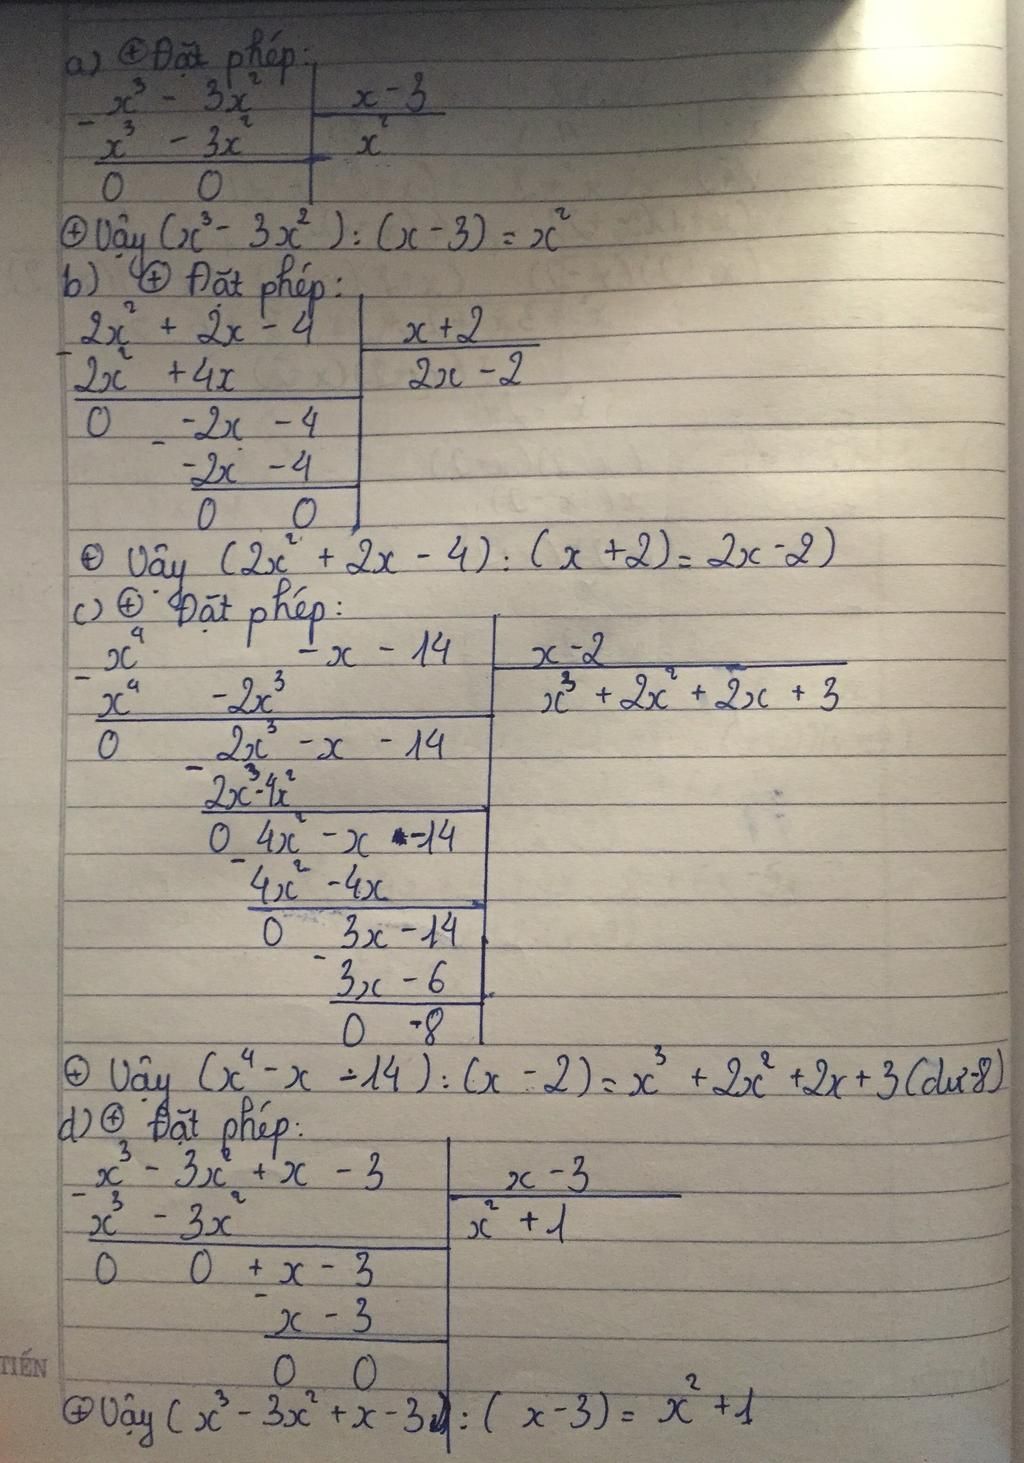 a) ⊕ Đặt phép:
x³ - 3x² | x - 3
- x³ - 3x² | x²
0 0
⊕ Vậy (x³ - 3x²) : (x - 3) = x²
b) ⊕ Đặt phép:
2x² + 2x - 4 | x + 2
- 2x² + 4x | 2x - 2
0 - -2x - 4
-2x - 4
0 0
⊕ Vậy (2x² + 2x - 4) : (x + 2) = 2x - 2)
c) ⊕ Đặt phép:
x⁴ - x - 14 | x - 2
- x⁴ - 2x³ | x³ + 2x² + 2x + 3
0 2x³ - x - 14
- 2x³ - 4x²
0 4x² - x - 14
- 4x² - 4x
0 3x - 14
- 3x - 6
0 -8
⊕ Vậy (x⁴ - x - 14) : (x - 2) = x³ + 2x² + 2x + 3 (dư -8)
d) ⊕ Đặt phép:
x³ - 3x² + x - 3 | x - 3
- x³ - 3x² | x² + 1
0 0 + x - 3
- x - 3
TIẾN
0 0
⊕ Vậy (x³ - 3x² + x - 3) : (x - 3) = x² + 1